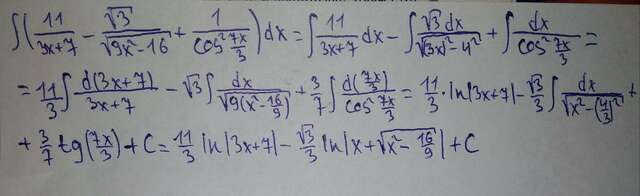 ∫(11/(3x+7) - √3/√(9x²-16) + 1/cos²(7x/3))dx = ∫11/(3x+7) dx - ∫√3dx/√((3x)²-4²) + ∫dx/cos²(7x/3) =
= 11/3 ∫d(3x+7)/(3x+7) - √3 ∫dx/√(9(x²-16/9)) + 3/7 ∫d(7x/3)/cos²(7x/3) = 11/3 · ln|3x+7| - √3/3 ∫dx/√(x²-(4/3)²) +
+ 3/7 tg(7x/3) + C = 11/3 ln|3x+7| - √3/3 ln|x+√(x²-16/9)| + C